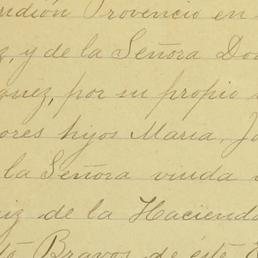 udión Provencio en
z, y de la Señora Do
onez, por su propio
ores hijos María, J
la Señora viuda
iz de la Hacienda
to Bravos de éste E